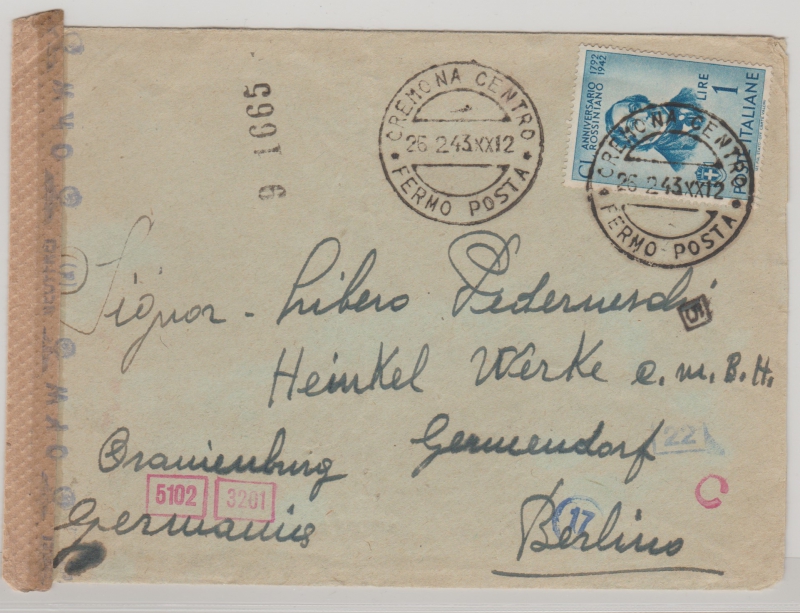 9 1665
CREMONA CENTRO
26 2.43.XXI 2
* FERMO POSTA *
CI ANNIVERSARIO 1792
ROSSINIANO 1942
LIRE 1
POSTE ITALIANE
CREMONA CENTRO
26 2.43.XXI 2
* FERMO POSTA *
OKW
OKW
Signor - Libero Pederneschi
5
Heinkel Werke G.m.B.H.
Oranienburg Germendorf
22
5102 3201
C
Germania Berlino
17